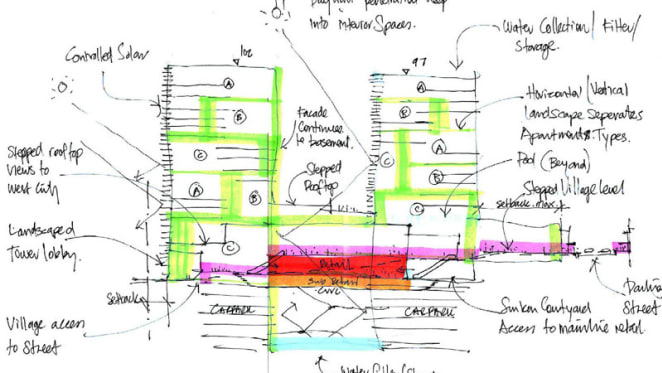 Daylight penetration deep
into interior Spaces.
Water Collection/Filter/
Storage.
Controlled Solar
102
97
Horizontal/Vertical
Landscape Seperates
Apartments Types.
Facade
Continues
to basement.
Stepped
Rooftop
Pool (Beyond)
Stepped Village level
setback
Stepped rooftop
views to
west City
Landscaped
Tower lobby.
A
B
C
A
B
C
A
B
A
C
B
C
Retail
Sub Retail
Civic
Setback
CARPARK
CARPARK
Village access
to Street
Sunken Courtyard
Access to mainline retail.
Street